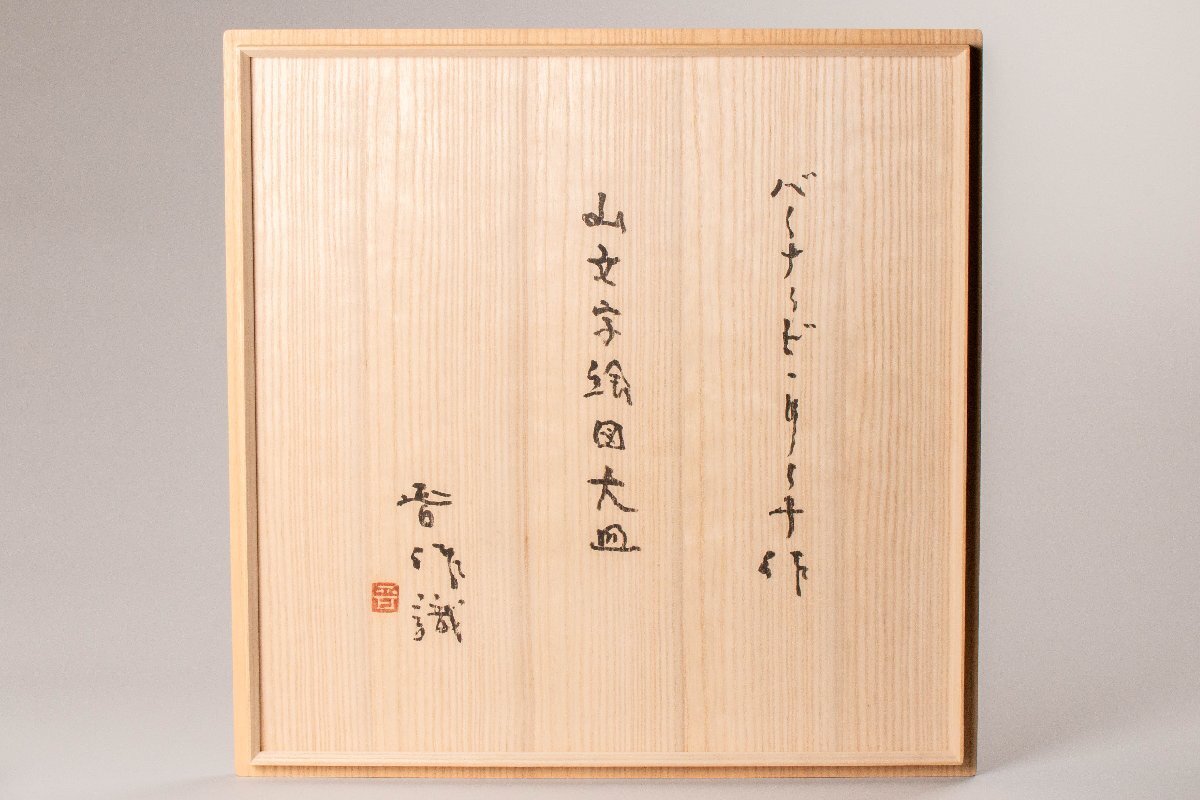 バーナード・リーチ作
山文字絵図大皿
晋作識
晋